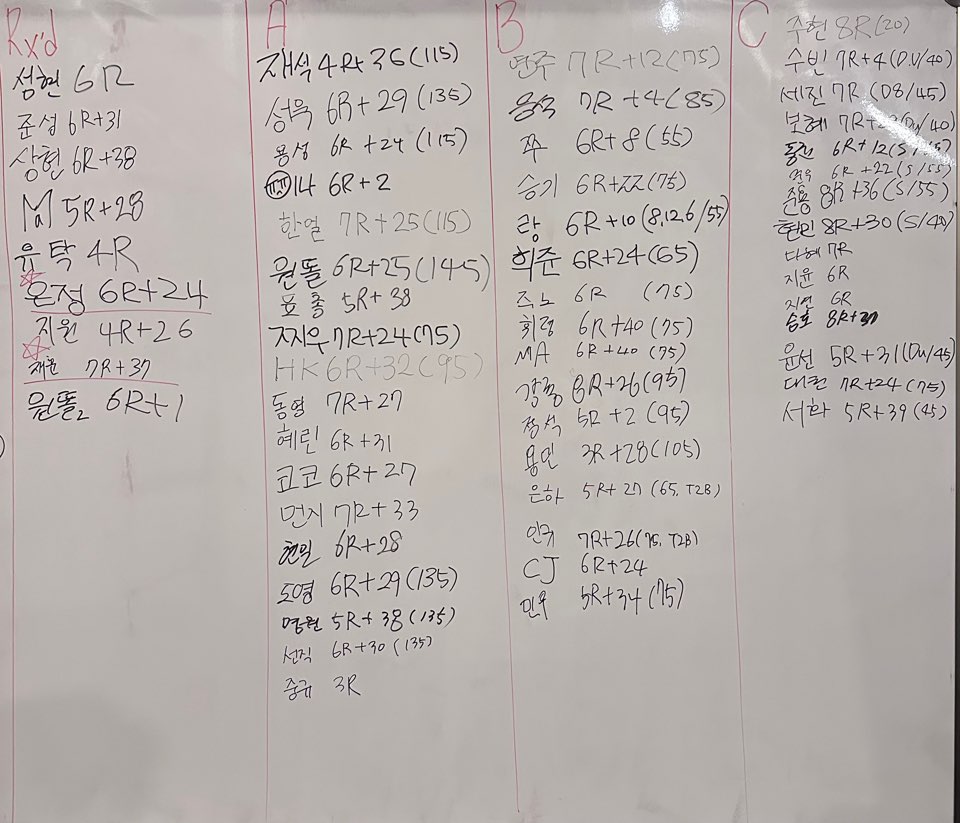 Rx'd
섬현 6R
준성 6R+31
상현 6R+38
Ma 5R+28
유탁 4R
은정 6R+24
지원 4R+26
재윤 7R+37
원똘2 6R+1
A
재식 4R+36(115)
성욱 6R+29(135)
용성 6R+24(115)
미나 6R+2
한열 7R+25(115)
원똘 6R+25(145)
표총 5R+38
찌우 7R+24(75)
HK 6R+32(95)
동형 7R+27
혜린 6R+31
코코 6R+27
먼지 7R+33
현일 6R+28
도영 6R+29(135)
영원 5R+38(135)
선직 6R+30(135)
중규 3R
B
연주 7R+12(75)
7R+4(85)
쭈 6R+8(55)
승기 6R+22(75)
랑 6R+10(8,12,6/55)
희준 6R+24(65)
즈노 6R (75)
휘령 6R+40(75)
MA 6R+40(75)
8R+26(95)
정석 5R+2(95)
용민 3R+28(105)
은하 5R+27(65, T2B)
민규 7R+26(75, T2B)
CJ 6R+24
민우 5R+34(75)
C
주현 8R(20)
수빈 7R+4(DU/40)
세진 7R(D8/45)
보혜 (Du/40)
6R+12
6R+22(S/55)
준용 8R+36(S/55)
현민 8R+30(S/40)
다혜 7R
지윤 6R
지연 6R
승호 8R+37
윤선 5R+31(Du/45)
대원 7R+24(75)
서화 5R+39(45)